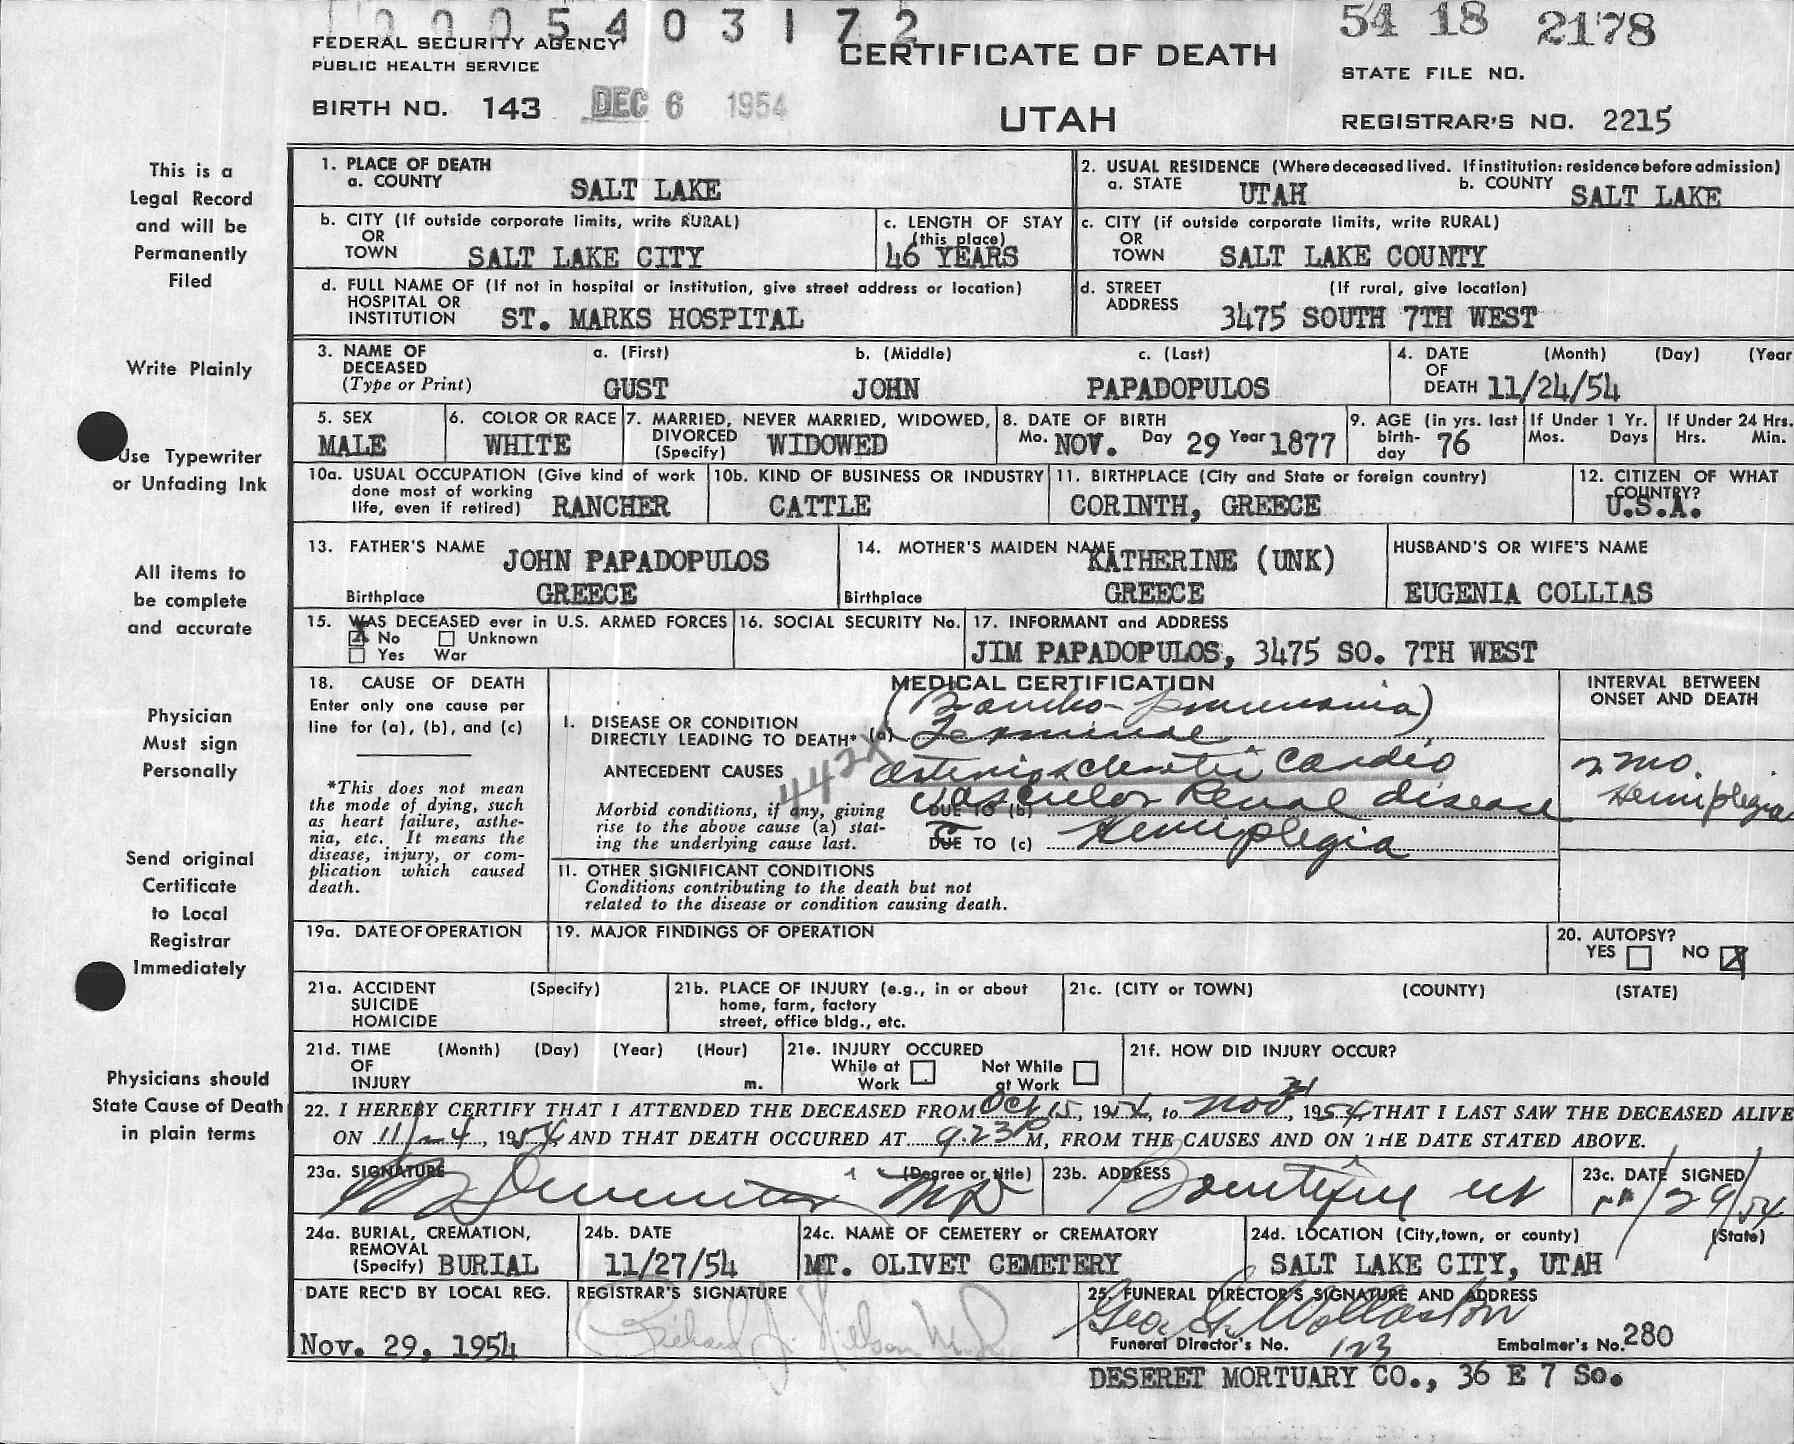 0005403172
54 18 2178
FEDERAL SECURITY AGENCY
PUBLIC HEALTH SERVICE
CERTIFICATE OF DEATH
STATE FILE NO.
BIRTH NO. 143 DEC 6 1954
UTAH
REGISTRAR'S NO. 2215
This is a
Legal Record
and will be
Permanently
Filed
Write Plainly
Use Typewriter
or Unfading Ink
All items to
be complete
and accurate
Physician
Must sign
Personally
Send original
Certificate
to Local
Registrar
Immediately
Physicians should
State Cause of Death
in plain terms
1. PLACE OF DEATH
a. COUNTY SALT LAKE
2. USUAL RESIDENCE (Where deceased lived. If institution: residence before admission)
a. STATE UTAH b. COUNTY SALT LAKE
b. CITY (If outside corporate limits, write RURAL)
OR
TOWN SALT LAKE CITY
c. LENGTH OF STAY
(this place)
46 YEARS
c. CITY (if outside corporate limits, write RURAL)
OR
TOWN SALT LAKE COUNTY
d. FULL NAME OF (If not in hospital or institution, give street address or location)
HOSPITAL OR
INSTITUTION ST. MARKS HOSPITAL
d. STREET (If rural, give location)
ADDRESS 3475 SOUTH 7TH WEST
3. NAME OF DECEASED
(Type or Print)
a. (First) b. (Middle) c. (Last)
GUST JOHN PAPADOPULOS
4. DATE (Month) (Day) (Year
OF
DEATH 11/24/54
5. SEX
MALE
6. COLOR OR RACE
WHITE
7. MARRIED, NEVER MARRIED, WIDOWED,
DIVORCED
(Specify) WIDOWED
8. DATE OF BIRTH
Mo. NOV. Day 29 Year 1877
9. AGE (in yrs. last
birth-
day 76
If Under 1 Yr.
Mos. Days
If Under 24 Hrs.
Hrs. Min.
10a. USUAL OCCUPATION (Give kind of work
done most of working
life, even if retired) RANCHER
10b. KIND OF BUSINESS OR INDUSTRY
CATTLE
11. BIRTHPLACE (City and State or foreign country)
CORINTH, GREECE
12. CITIZEN OF WHAT
COUNTRY?
U.S.A.
13. FATHER'S NAME JOHN PAPADOPULOS
Birthplace GREECE
14. MOTHER'S MAIDEN NAME KATHERINE (UNK)
Birthplace GREECE
HUSBAND'S OR WIFE'S NAME
EUGENIA COLLIAS
15. WAS DECEASED ever in U.S. ARMED FORCES
X No Unknown
Yes War
16. SOCIAL SECURITY No.
17. INFORMANT and ADDRESS
JIM PAPADOPULOS, 3475 SO. 7TH WEST
18. CAUSE OF DEATH
Enter only one cause per
line for (a), (b), and (c)
*This does not mean
the mode of dying, such
as heart failure, asthe-
nia, etc. It means the
disease, injury, or com-
plication which caused
death.
MEDICAL CERTIFICATION
(Broncho-pneumonia)
I. DISEASE OR CONDITION
DIRECTLY LEADING TO DEATH* (a) Terminal
442X
ANTECEDENT CAUSES
Arteriosclerotic Cardio
Morbid conditions, if any, giving
rise to the above cause (a) stat-
ing the underlying cause last.
DUE TO (b) Vascular Renal disease
DUE TO (c) Hemiplegia
INTERVAL BETWEEN
ONSET AND DEATH
2 mo.
Hemiplegia
11. OTHER SIGNIFICANT CONDITIONS
Conditions contributing to the death but not
related to the disease or condition causing death.
19a. DATE OF OPERATION
19. MAJOR FINDINGS OF OPERATION
20. AUTOPSY?
YES NO X
21a. ACCIDENT (Specify)
SUICIDE
HOMICIDE
21b. PLACE OF INJURY (e.g., in or about
home, farm, factory
street, office bldg., etc.
21c. (CITY or TOWN) (COUNTY) (STATE)
21d. TIME (Month) (Day) (Year) (Hour)
OF
INJURY m.
21e. INJURY OCCURED
While at Work Not While at Work
21f. HOW DID INJURY OCCUR?
22. I HEREBY CERTIFY THAT I ATTENDED THE DECEASED FROM Oct 15, 1954, to Nov, 1954, THAT I LAST SAW THE DECEASED ALIVE
ON 11/24, 1954 AND THAT DEATH OCCURED AT 9:23 P M, FROM THE CAUSES AND ON THE DATE STATED ABOVE.
23a. SIGNATURE (Degree or title)
MD
23b. ADDRESS
Bountiful Ut
23c. DATE SIGNED
/29/54
24a. BURIAL, CREMATION,
REMOVAL
(Specify) BURIAL
24b. DATE
11/27/54
24c. NAME OF CEMETERY or CREMATORY
MT. OLIVET CEMETERY
24d. LOCATION (City, town, or county) (State)
SALT LAKE CITY, UTAH
DATE REC'D BY LOCAL REG.
Nov. 29, 1954
REGISTRAR'S SIGNATURE
Richard J. Nilson M.D.
25. FUNERAL DIRECTOR'S SIGNATURE AND ADDRESS
Geo. G. Wollaston
Funeral Director's No. 123 Embalmer's No. 280
DESERET MORTUARY CO., 36 E 7 So.